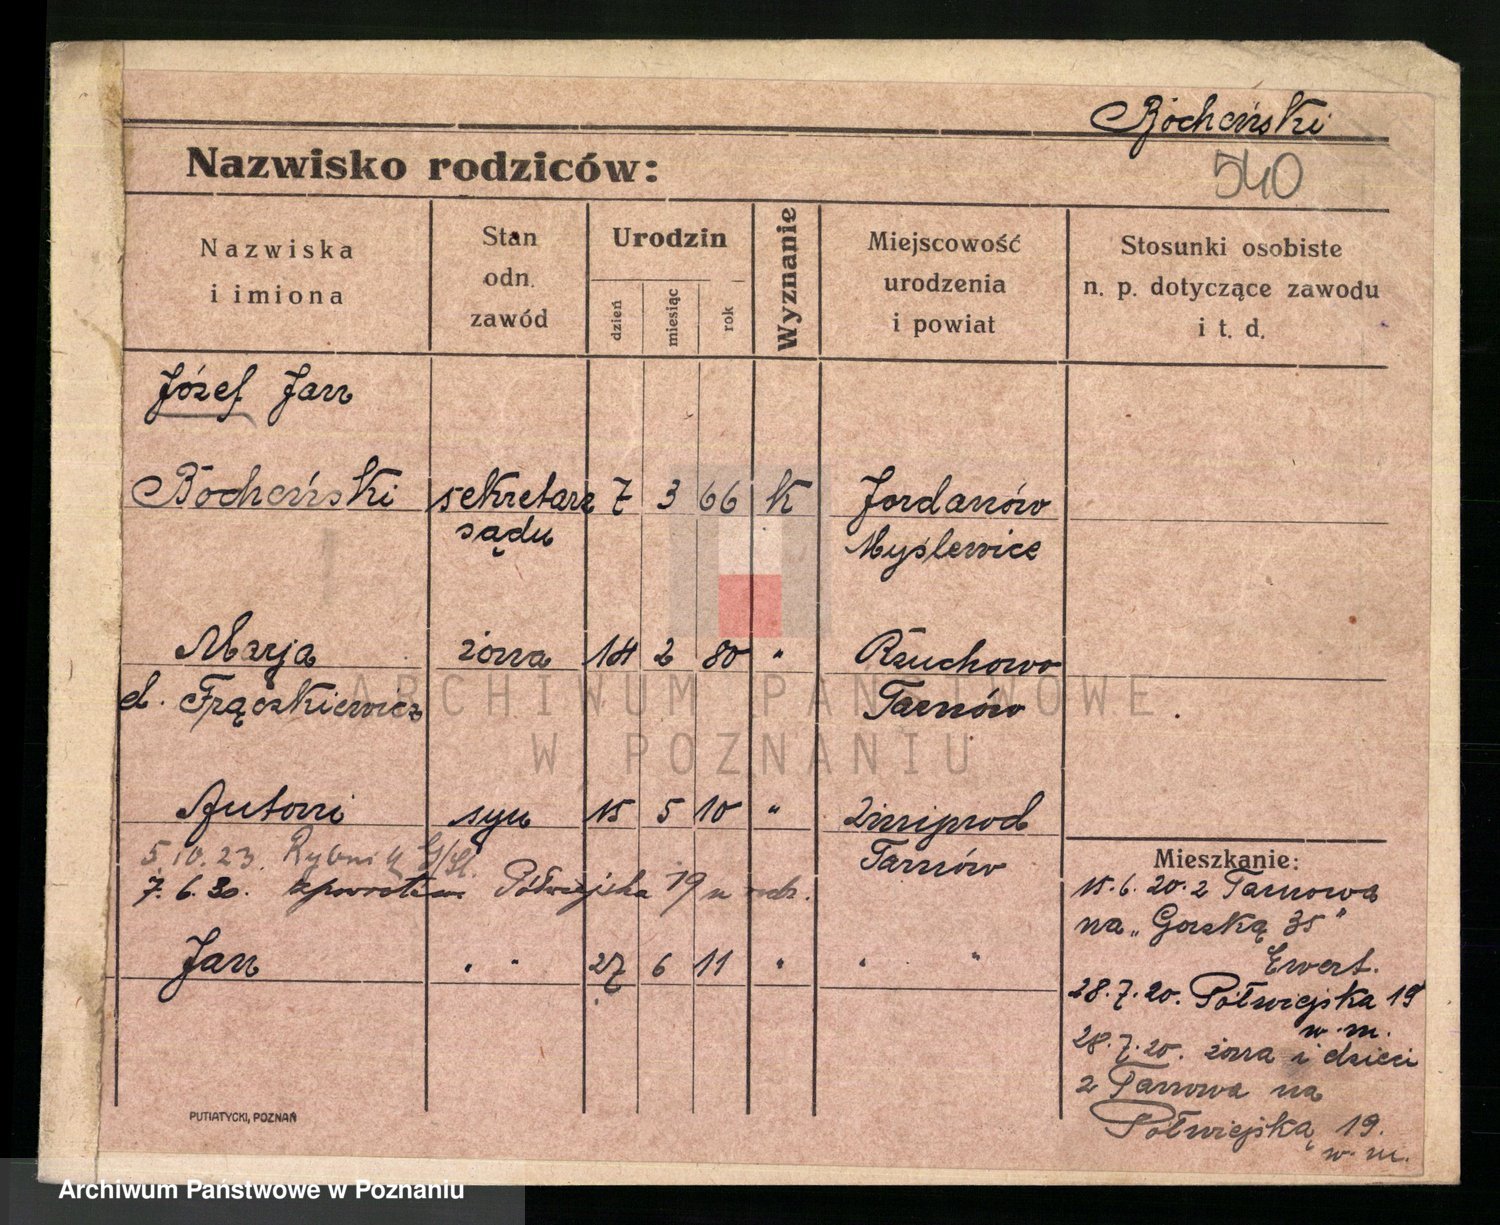 Bocheński
540
Nazwisko rodziców:
Nazwiska i imiona
Stan odn. zawód
Urodzin
dzień
miesiąc
rok
Wyznanie
Miejscowość urodzenia i powiat
Stosunki osobiste n. p. dotyczące zawodu i t. d.
Józef Jan
Bocheński sekretarz 7 3 66 K Jordanów
sądu Myślenice
Marja żona 14 2 80 " Rzuchowo
d. Frączkiewicz Tarnów
Antoni syn 15 5 10 " Zimiprod
5.10.23. Rybnik G/Śl. Tarnów
7.6.30. z powrotem Półwiejska 19 u rodz.
Jan " " 27 6 11 " " "
Mieszkanie:
15.6.20. z Tarnowa
na „Gorską 35"
Ewert.
28.7.20. Półwiejska 19
w. m.
28.7.20. żona i dzieci
z Tarnowa na
Półwiejską 19.
w. m.
PUTIATYCKI, POZNAŃ
ARCHIWUM PAŃSTWOWE
W POZNANIU
Archiwum Państwowe w Poznaniu